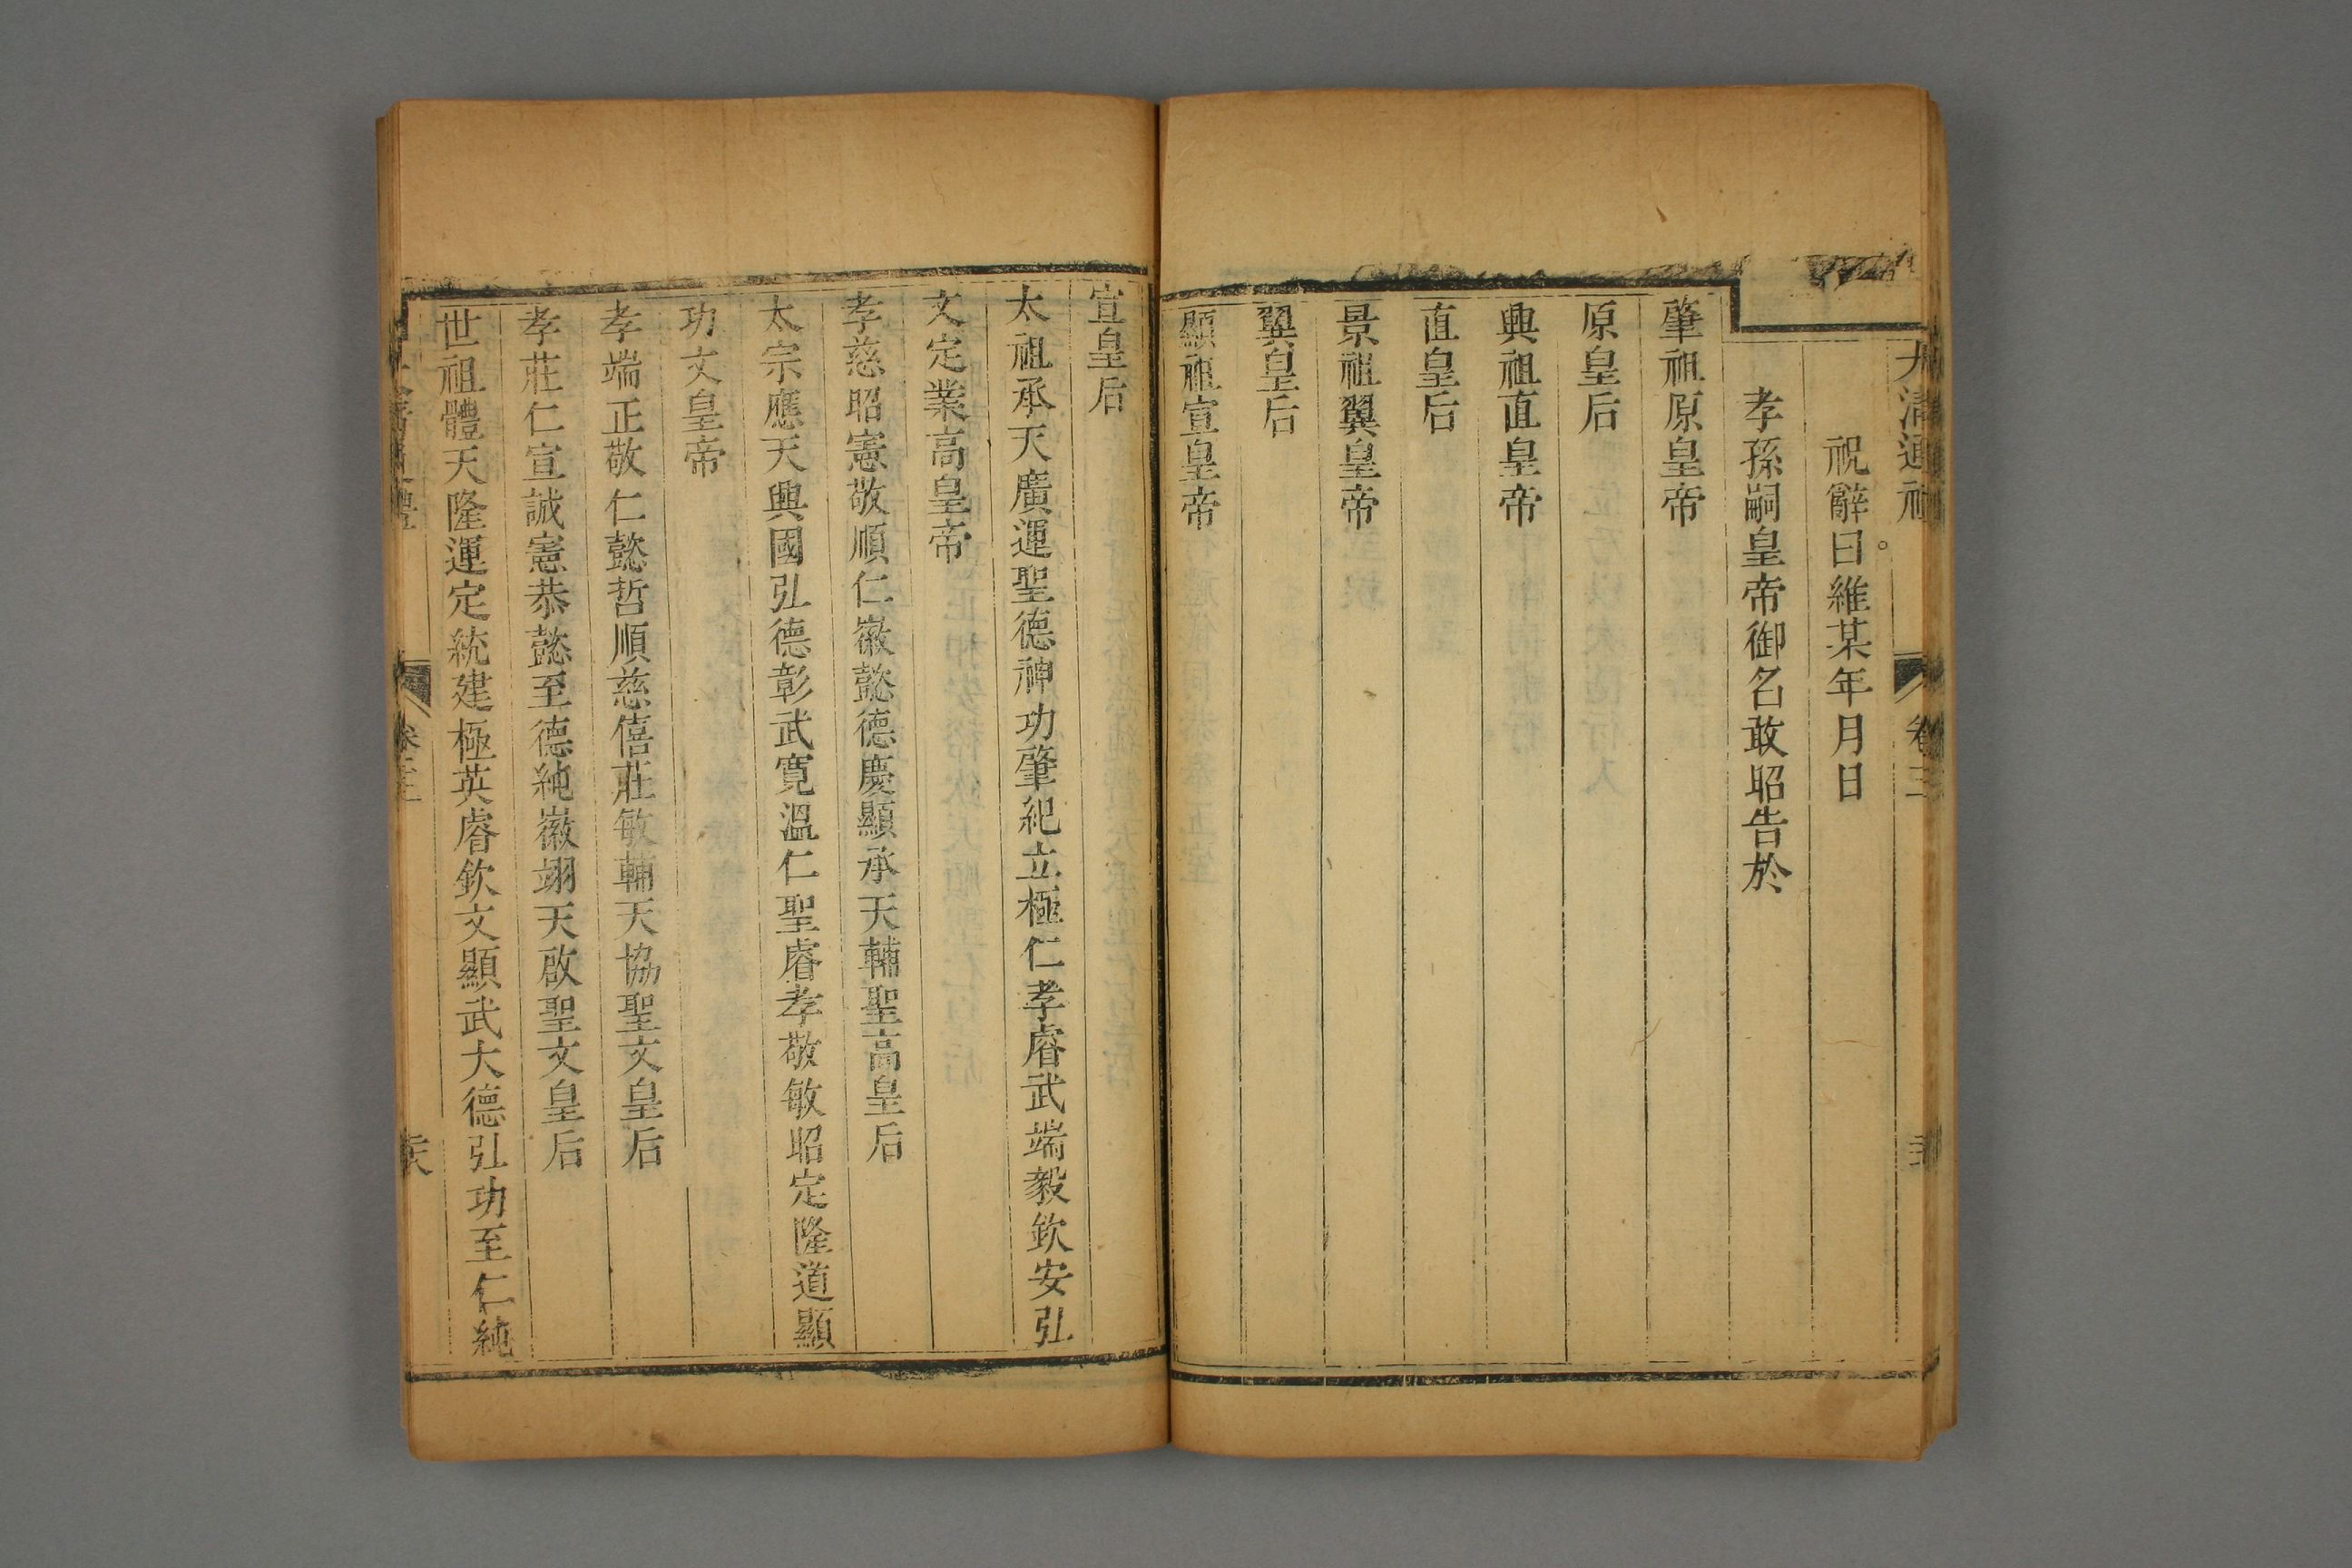 大清通禮
卷三
祝辭曰維某年月日
孝孫嗣皇帝御名敢昭告於
肇祖原皇帝
原皇后
興祖直皇帝
直皇后
景祖翼皇帝
翼皇后
顯祖宣皇帝
宣皇后
太祖承天廣運聖德神功肇紀立極仁孝睿武端毅欽安弘
文定業高皇帝
孝慈昭憲敬順仁徽懿德慶顯承天輔聖高皇后
太宗應天興國弘德彰武寬溫仁聖睿孝敬敏昭定隆道顯
功文皇帝
孝端正敬仁懿哲順慈僖莊敏輔天協聖文皇后
孝莊仁宣誠憲恭懿至德純徽翊天啟聖文皇后
世祖體天隆運定統建極英睿欽文顯武大德弘功至仁純
卷三